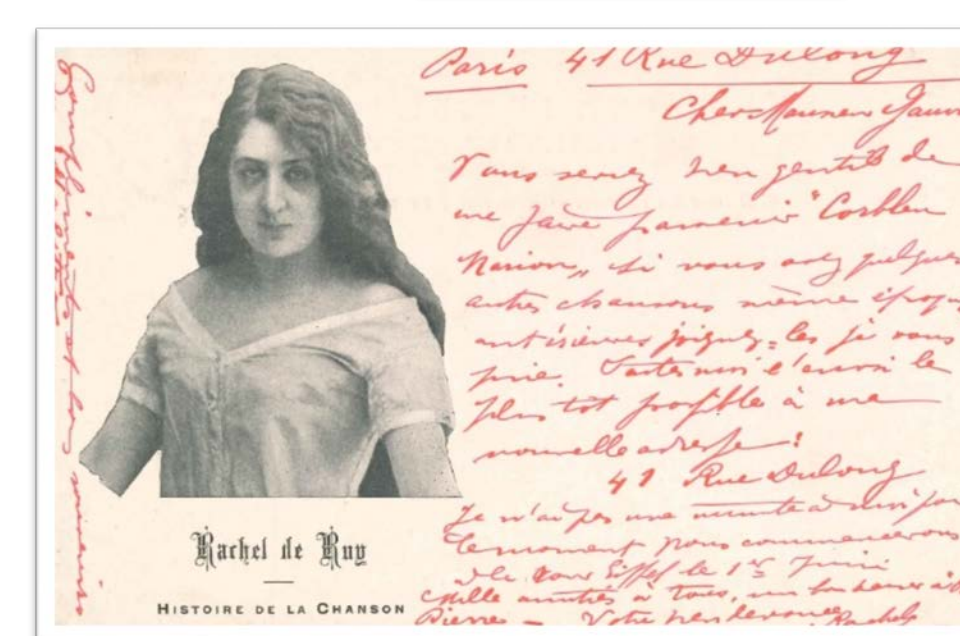 Paris 41 Rue Dulong
Vous seriez bien gentil de
me faire parvenir "Corbleu
Marion" si vous avez quelques
autres chansons même époque
antérieures joignez-les je vous
prie. Faites moi l'envoi le
plus tôt possible à ma
nouvelle adresse :
41 Rue Dulong
Je n'ai pas une minute à moi
le moment nous commencerons
à la Tour Eiffel le 1er Juin
Mille amitiés à tous, un bonheur à
Pierre - Votre bien dévouée Rachel
Rachel de Ruy
HISTOIRE DE LA CHANSON